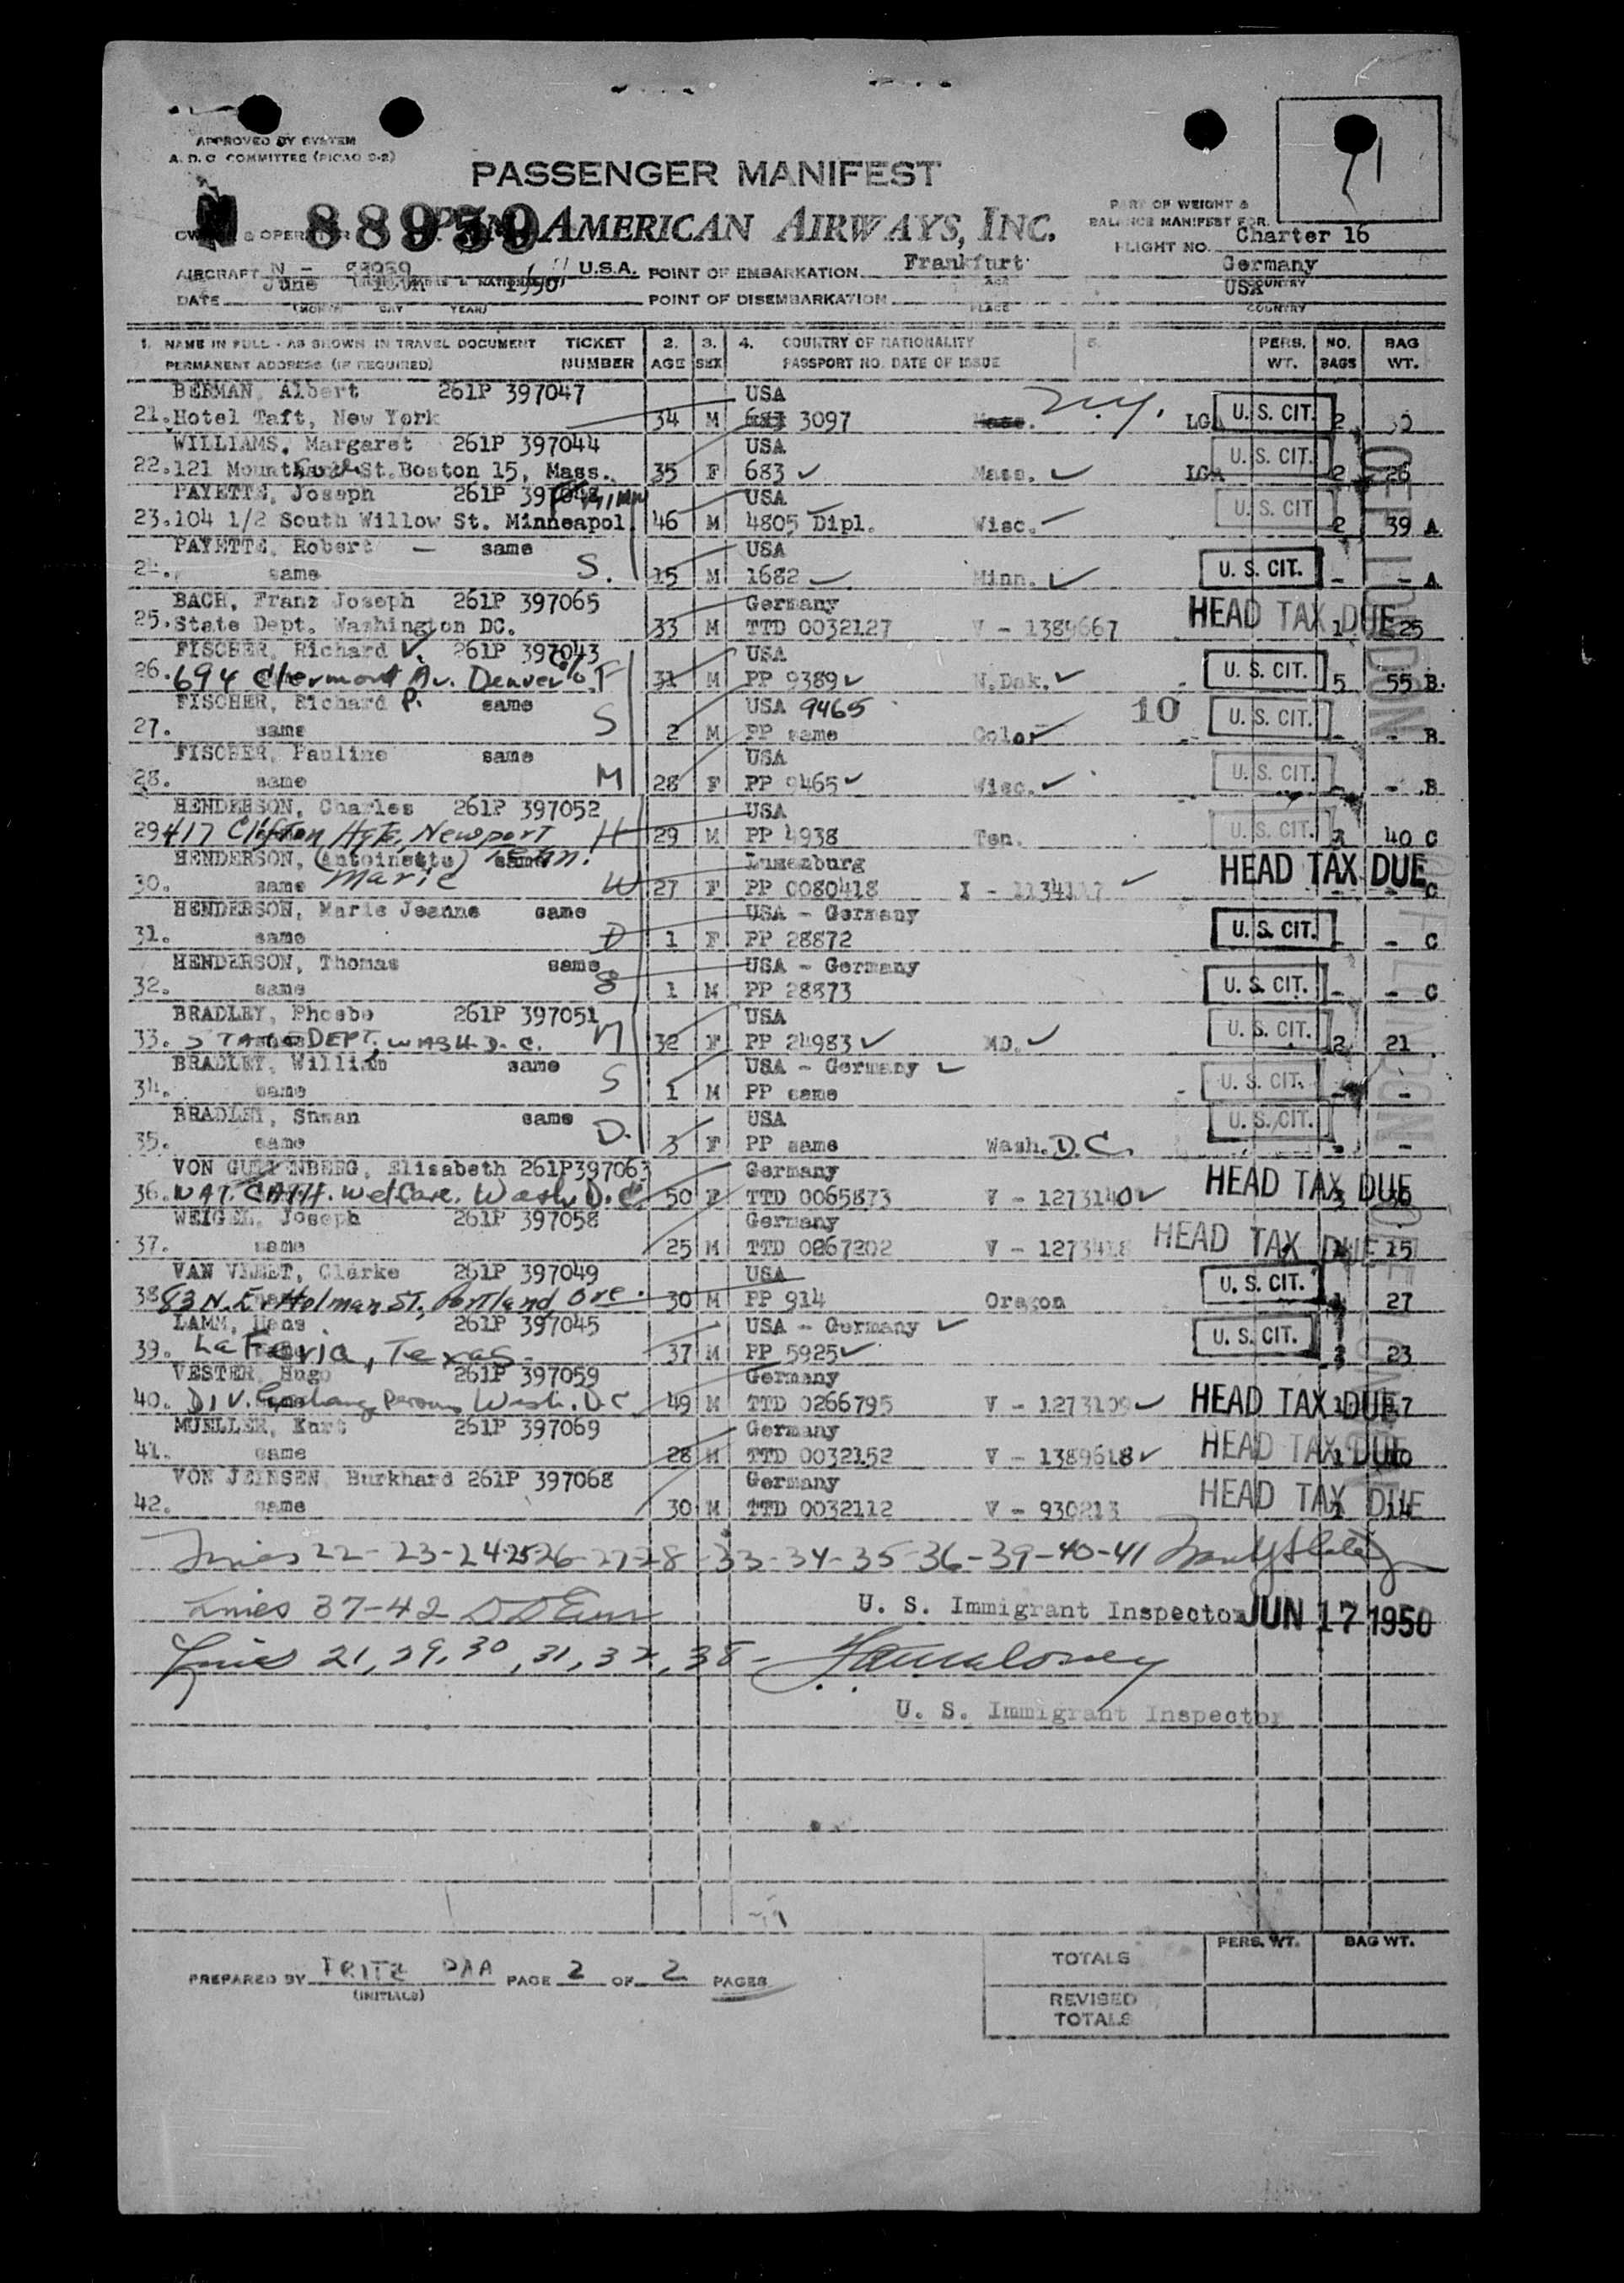 APPROVED BY SYSTEM
A. D. C. COMMITTEE (PICAO 9-2)
PASSENGER MANIFEST
88959
& OPERATOR
PAN AMERICAN AIRWAYS, INC.
PART OF WEIGHT &
BALANCE MANIFEST FOR
FLIGHT NO. Charter 16
AIRCRAFT N - 88959 U.S.A. POINT OF EMBARKATION Frankfurt Germany
COUNTRY
DATE June 1950 POINT OF DISEMBARKATION USA
(MONTH DAY YEAR) PLACE COUNTRY
1. NAME IN FULL - AS SHOWN IN TRAVEL DOCUMENT TICKET 2. 3. 4. COUNTRY OF NATIONALITY 5. PERS. NO. BAG
PERMANENT ADDRESS (IF REQUIRED) NUMBER AGE SEX PASSPORT NO. DATE OF ISSUE WT. BAGS WT.
BERMAN, Albert 261P 397047 USA
21. Hotel Taft, New York 34 M 3097 Mass. N.Y. LGA U. S. CIT. 2
WILLIAMS, Margaret 261P 397044 USA
22. 121 St. Boston 15, Mass. 35 F 683 Mass. LGA U. S. CIT. 2 26
PAYETTE, Joseph 261P USA
23. 104 1/2 South Willow St. Minneapol 46 M 4805 Dipl. Wisc. U. S. CIT 2 39 A
PAYETTE, Robert - same USA
24. same S. 15 M 1682 Minn. U. S. CIT. - - A
BACH, Franz Joseph 261P 397065 Germany
25. State Dept. Washington DC. 33 M TTD 0032127 V - 1389667 HEAD TAX DUE 1 25
FISCHER, Richard V. 261P 397043 USA
26. 694 Clermont Av. Denver Colo. F 31 M PP 9389 N.Dak. U. S. CIT. 5 55 B.
FISCHER, Richard P. same USA 9465
27. same S 2 M PP same Color 10 U. S. CIT. - - B
FISCHER, Pauline same USA
28. same M 28 F PP 9465 Wisc. U. S. CIT. - - B
HENDERSON, Charles 261P 397052 USA
29. 417 Clifton Hgts, Newport H 29 M PP 4938 Ten. U. S. CIT. 3 40 C
HENDERSON, (Antoinette) same Tenn. Luxemburg
30. same Marie W 27 F PP 0080418 I - HEAD TAX DUE - - C
HENDERSON, Marie Jeanne same USA - Germany
31. same D 1 F PP 28872 U. S. CIT. - - C
HENDERSON, Thomas same USA - Germany
32. same S 1 M PP 28873 U. S. CIT. - - C
BRADLEY, Phoebe 261P 397051 USA
33. STATE DEPT. WASH. D. C. M 32 F PP 24983 MD. U. S. CIT. 2 21
BRADLEY, William same USA - Germany
34. same S 1 M PP same U. S. CIT. - -
BRADLEY, Susan same USA
35. same D. 3 F PP same Wash. D.C. U. S. CIT. - -
VON Elisabeth 261P397063 Germany
36. NAT. CATH. Welfare. Wash D.C. 50 F TTD 0065873 V - 1273140 HEAD TAX DUE 3
WEIGEL, Joseph 261P 397058 Germany
37. same 25 M TTD 0267202 V - 1273418 HEAD TAX DUE 15
VAN VLIET, Clarke 261P 397049 USA
38. 83 N. E. Holman ST., Portland, Ore. 30 M PP 914 Oregon U. S. CIT. 27
LAMM, Hans 261P 397045 USA - Germany
39. La Feria, Texas 37 M PP 5925 U. S. CIT. 2 23
VESTER, Hugo 261P 397059 Germany
40. DIV. Exchange Persons Wash. DC 49 M TTD 0266795 V - 1273109 HEAD TAX DUE
MUELLER, Kurt 261P 397069 Germany
41. same 28 M TTD 0032152 V - 1389618 HEAD TAX DUE
VON JEINSEN, Burkhard 261P 397068 Germany
42. same 30 M TTD 0032112 V - 930213 HEAD TAX DUE 14
Lines 22-23-24-25-26-27-28-33-34-35-36-39-40-41
Lines 37-42 U. S. Immigrant Inspector JUN 17 1950
Lines 21, 29, 30, 31, 32, 38 -
U. S. Immigrant Inspector
PREPARED BY TRITZ PAA PAGE 2 OF 2 PAGES
(INITIALS)
PERS. WT. BAG WT.
TOTALS
REVISED
TOTALS